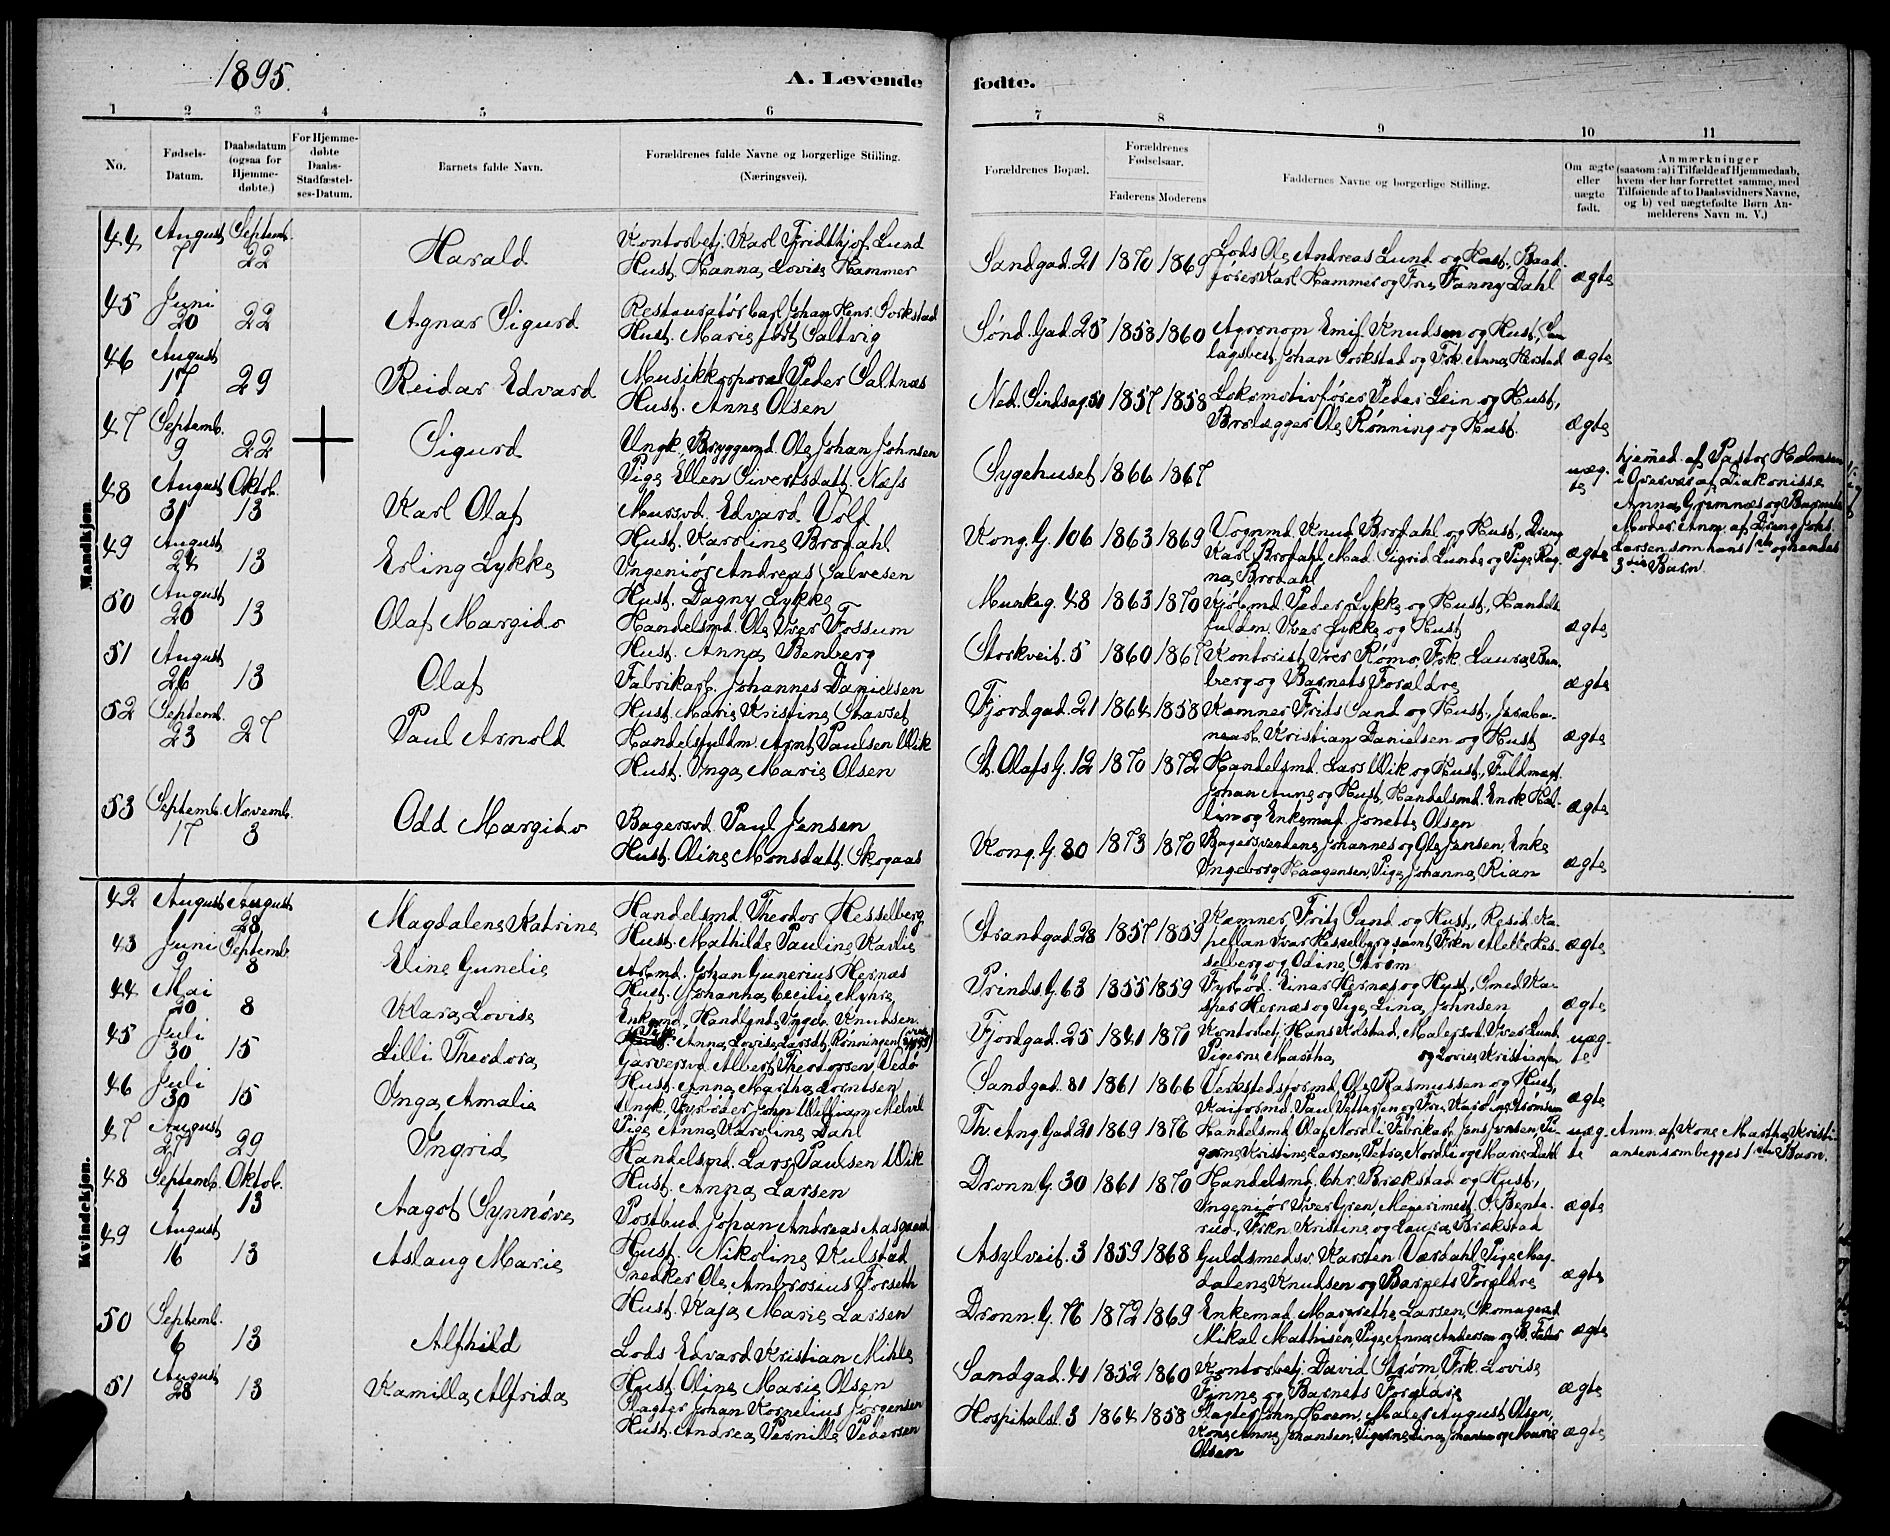 1895.
A. Levende fødte.
1 2 3 4 5 6 7 8 9 10 11
No.
Fødsels-Datum.
Daabsdatum (ogsaa for Hjemme-døbte.)
For Hjemme-døbte Daabs-Stadfæstel-ses-Datum.
Barnets fulde Navn.
Forældrenes fulde Navne og borgerlige Stilling. (Næringsvei).
Forældrenes Bopæl.
Forældrenes Fødselsaar.
Faderens Moderens
Faddernes Navne og borgerlige Stilling.
Om ægte eller uægte født.
Anmærkninger
(saasom: a) i Tilfælde af Hjemmedaab,
hvem der har forrettet samme, med
Tilføiende af to Daabsvidners Navne,
og b) ved uægtefødte Børn An-
melderens Navn m. V.)
Mandkjøn
44 August 7 Septemb. 22 Harald
Kontorbetj. Karl Fridthjof Lund
Hust. Hanna Lovise Hammer
Sandgad. 21 1870 1869
Lods Ole Andreas Lund og Hust., Baad-
fører Karl Hammer og Frk. Fanny Dahl
ægte
45 Juni 20 22 Agnar Sigurd
Restauratør Carl Johan Henr. Sorkstad
Hust. Marie født Saltvig
Sønd. Gad. 25 1858 1860
Agronom Emil Knudsen og Hust,
lagsbest. Johan Sorkstad og Frk. Anna
ægte
46 August 17 29 Reidar Edvard
Musikkorporal Peder Saltnæs
Hust. Anne Olsen
Ned. 51 1857 1858
Lokomotivfører Peder Lein og Hust,
Brolægger Ole Rønning og Hust.
ægte
47 Septemb. 9 22 Sigurd
Ungk., Bryggemd. Ole Johan Johnsen
Pige Ellen Sivertsdatt. Næss
Sygehuset 1866 1867
uæg-
te
hjemmed. af Pastor Holmsen
i Overvær af Diakonisse
Anna Grømnæs og
Moder. Anm. af Dreng Johs.
Larsen som hans 1ste og hendes
3die Barn.
48 August 31 Oktob. 13 Karl Olaf
Mursvd. Edvard Vold
Hust. Karoline Brodahl
Kong. G. 106 1863 1869
Vognmd. Knud Brodahl og Hust, Dreng
Karl Brodahl, Mad. Sigrid Lunde og Pige Rag-
na Brodahl
ægte
49 August 24 13 Erling Lykke
Ingeniør Andreas Salvesen
Hust. Dagny Lykke
Munkeg. 48 1863 1870
Kjøbmd. Peder Lykke og Hust, Handels-
fuldm. Iver Lykke og Hust
ægte
50 August 20 13 Olaf Margido
Handelsmd. Ole Iver Fossum
Hust. Anna Benberg
Storkveit. 5 1860 1867
Kontorist Iver Romo, Frk. Laura Ben-
berg og Barnets Forældre
ægte
51 August 26 13 Olaf
Fabrikarb. Johannes Danielsen
Hust. Marie Kristine Stavset
Fjordgad. 21 1864 1858
Kæmner Frits Sand og Hust, Jernba-
nearb. Kristian Danielsen og Hust
ægte
52 Septemb. 23 27 Paul Arnold
Handelsfuldm. Arnt Paulsen Wik
Hust. Inga Marie Olsen
St. Olafs G. 12 1870 1872
Handelsmd. Lars Wik og Hust, Fuldmægt.
Johan Aune og Hust, Handelsmd. Enok
og Enkemad. Jonette Olsen
ægte
53 Septemb. 17 Novemb. 3 Odd Margido
Bagersvd. Paul Jensen
Hust. Oline Monsdatt. Skogaas
Kong. G. 80 1873 1870
Bagersvendene Johannes og Ole Jensen, Enke
Ingeborg Haagensen, Pige Johanna Rian
ægte
Kvindekjøn.
42 August 1 August 28 Magdalene Katrine
Handelsmd. Theodor Hesselberg
Hust. Mathilde Pauline Karlie
Strandgad. 28 1857 1859
Kæmner Fritz Sand og Hust, Resid. Ka-
pellan Ivar Hesselberg samt Frkn Alette Hes-
selberg og Odine Strøm
ægte
43 Juni 9 Septemb. 8 Eline Gunelie
Arbmd. Johan Gunerius Hernæs
Hust. Johanna Cecilie Myhre
Prinds. G. 63 1855 1859
Fyrbød. Einar Hernæs og Hust, Smed Ka-
sper Hernæs og Pige Lina Johnsen
ægte
44 Mai 20 8 Klara Lovise
Enkemd., Handlgmd. Ingbr. Knudsen
Pige Anna Lovise Larsdt. Rønningen
Fjordgad. 25 1841 1871
Kontorbetj. Hans Kolstad, Malersvd. Iver Lund,
Pigerne Martha og Lovise Kristiansen
uæg-
te
45 Juli 30 15 Lilli Theodora
Garversvd. Albert Theodorsen Vedø
Hust. Anna Martha Arntsen
Sandgad. 31 1861 1866
Verkstedsformd. Ole Rasmussen og Hust,
Kaiformd. Paul Pettersen og Fru Karoline Strømsem
ægte
46 Juli 30 15 Inga Amalie
Ungk., Fyrbøder John William Melvil
Pige Anna Karoline Dahl
Th. Ang. Gad 21 1869 1876
Handelsmd. Olaf Nordli, Fabrikarb. Jens Jensen, Pi-
gerne Kristine Larsen, Petra Nordli og Marie Dahl
uæg-
te
Anm. af Kone Martha Kristi-
ansen som begges 1ste Barn.
47 August 27 29 Ingrid
Handelsmd. Lars Paulsen Wik
Hust. Anna Larsen
Dronn. G. 30 1861 1870
Handelsmd. Chr. Brækstad og Hust,
Ingeniør Iver Grøn, Meierimest. S. Bente-
rud, Frkn Kristine og Laura Brækstad
ægte
48 Septemb. 1 Oktob. 13 Aagot Synnøve
Postbud Johan Andreas Aasgaard
Hust. Nikoline Kulstad
Asylveit. 3 1859 1868
Guldsmedsv. Karsten Værdahl, Pige Mag-
dalene Knudsen og Barnets Forældre
ægte
49 August 16 13 Aslaug Marie
Snedker Ole Ambrosius Forseth
Hust. Kaja Marie Larsen
Dronn. G. 76 1872 1869
Enkemad. Margrethe Larsen, Skomagersvd.
Mikal Mathisen, Pige Anna Andersen og B. Fader
ægte
50 Septemb. 6 13 Alfhild
Lods Edvard Kristian Mihle
Hust Oline Marie Olsen
Sandgad. 41 1852 1860
Kontorbetj. David Strøm, Frk. Lovise
Finne og Barnets Forældre
ægte
51 August 28 13 Kamilla Alfrida
Slagter Johan Kornelius Jørgensen
Hust. Andrea Pernille Pedersen
Hospitalsl. 3 1864 1858
Slagter John Hoem, Maler August Olsen,
Kone Anne Johansen, Pigerne Lina Johansen og Marie
Olsen
ægte